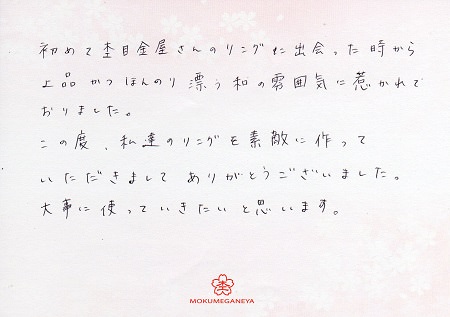 初めて杢目金屋さんのリングに出会った時から
上品かつほんのり漂う和の雰囲気に惹かれて
おりました。
この度、私達のリングを素敵に作って
いただきまして ありがとうございました。
大事に使っていきたいと思います。
MOKUMEGANEYA